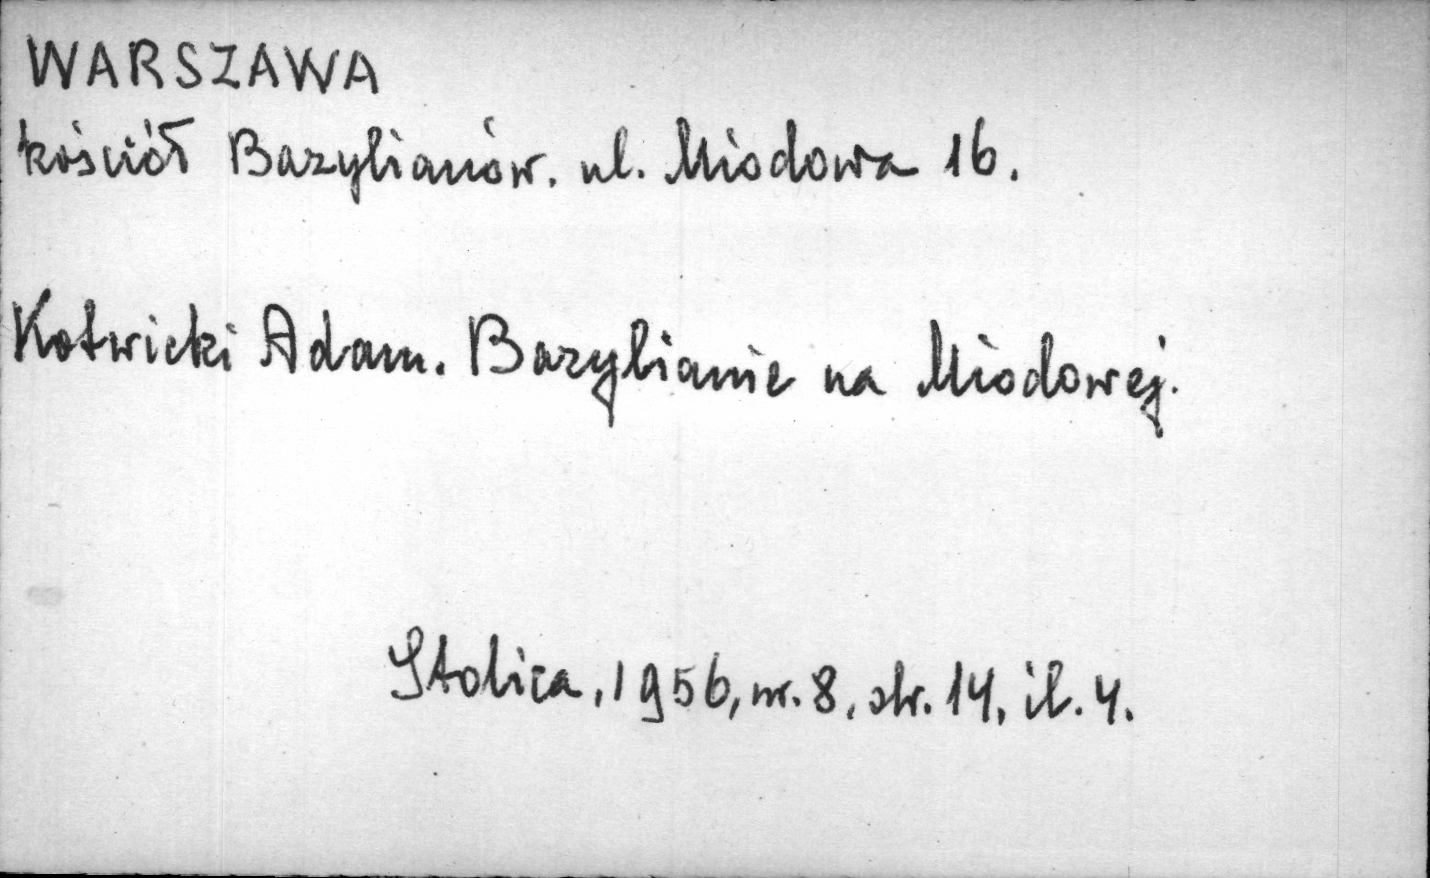 WARSZAWA
kościół Bazylianów. ul. Miodowa 16.
Kotwicki Adam. Bazylianie na Miodowej.
Stolica, 1956, nr. 8, str. 14, il. 4.